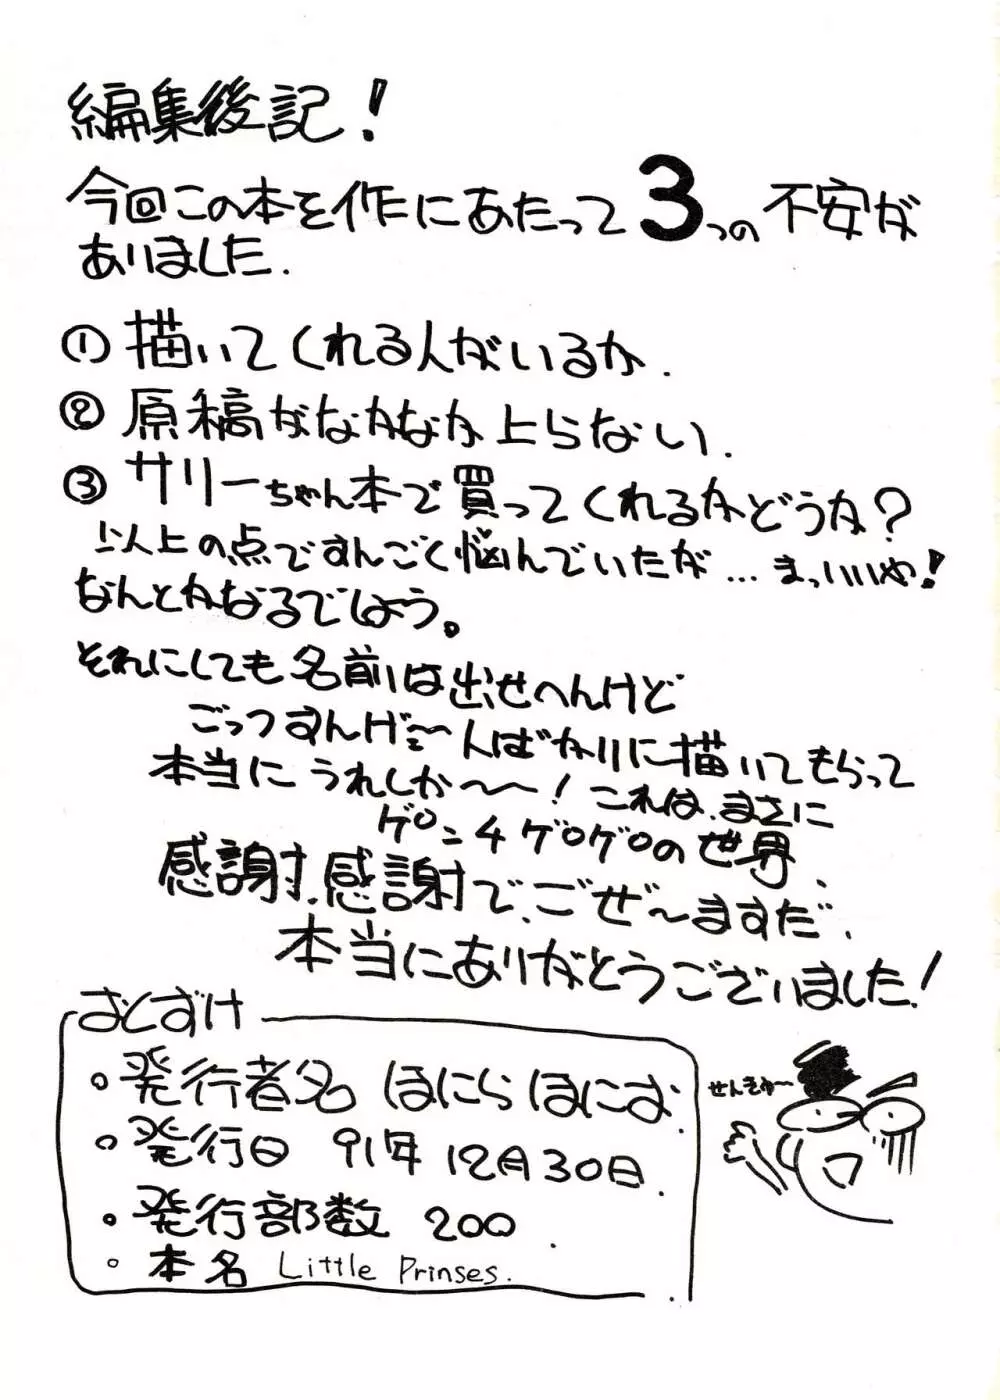 編集後記!
今回この本を作にあたって3つの不安が
ありました.
① 描いてくれる人がいるか.
② 原稿がなかなか上らない.
③ サリーちゃん本で買ってくれるかどうか?
以上の点ですんごく悩んでいたが…まっいいや!
なんとかなるでしょう。
それにしても名前は出せへんけど
ごっつすんげ〜人ばかりに描いてもらって
本当にうれしか〜〜!これは.まさに
ゲロニ4ゲロゲロの世界.
感謝.感謝で.ござ〜ますだ.
本当にありがとうございました!
おくずけ
・発行者名 ほにらほにお
・発行日 91年12月30日.
・発行部数 200.
・本名 Little Prinses.
せんきゅ〜